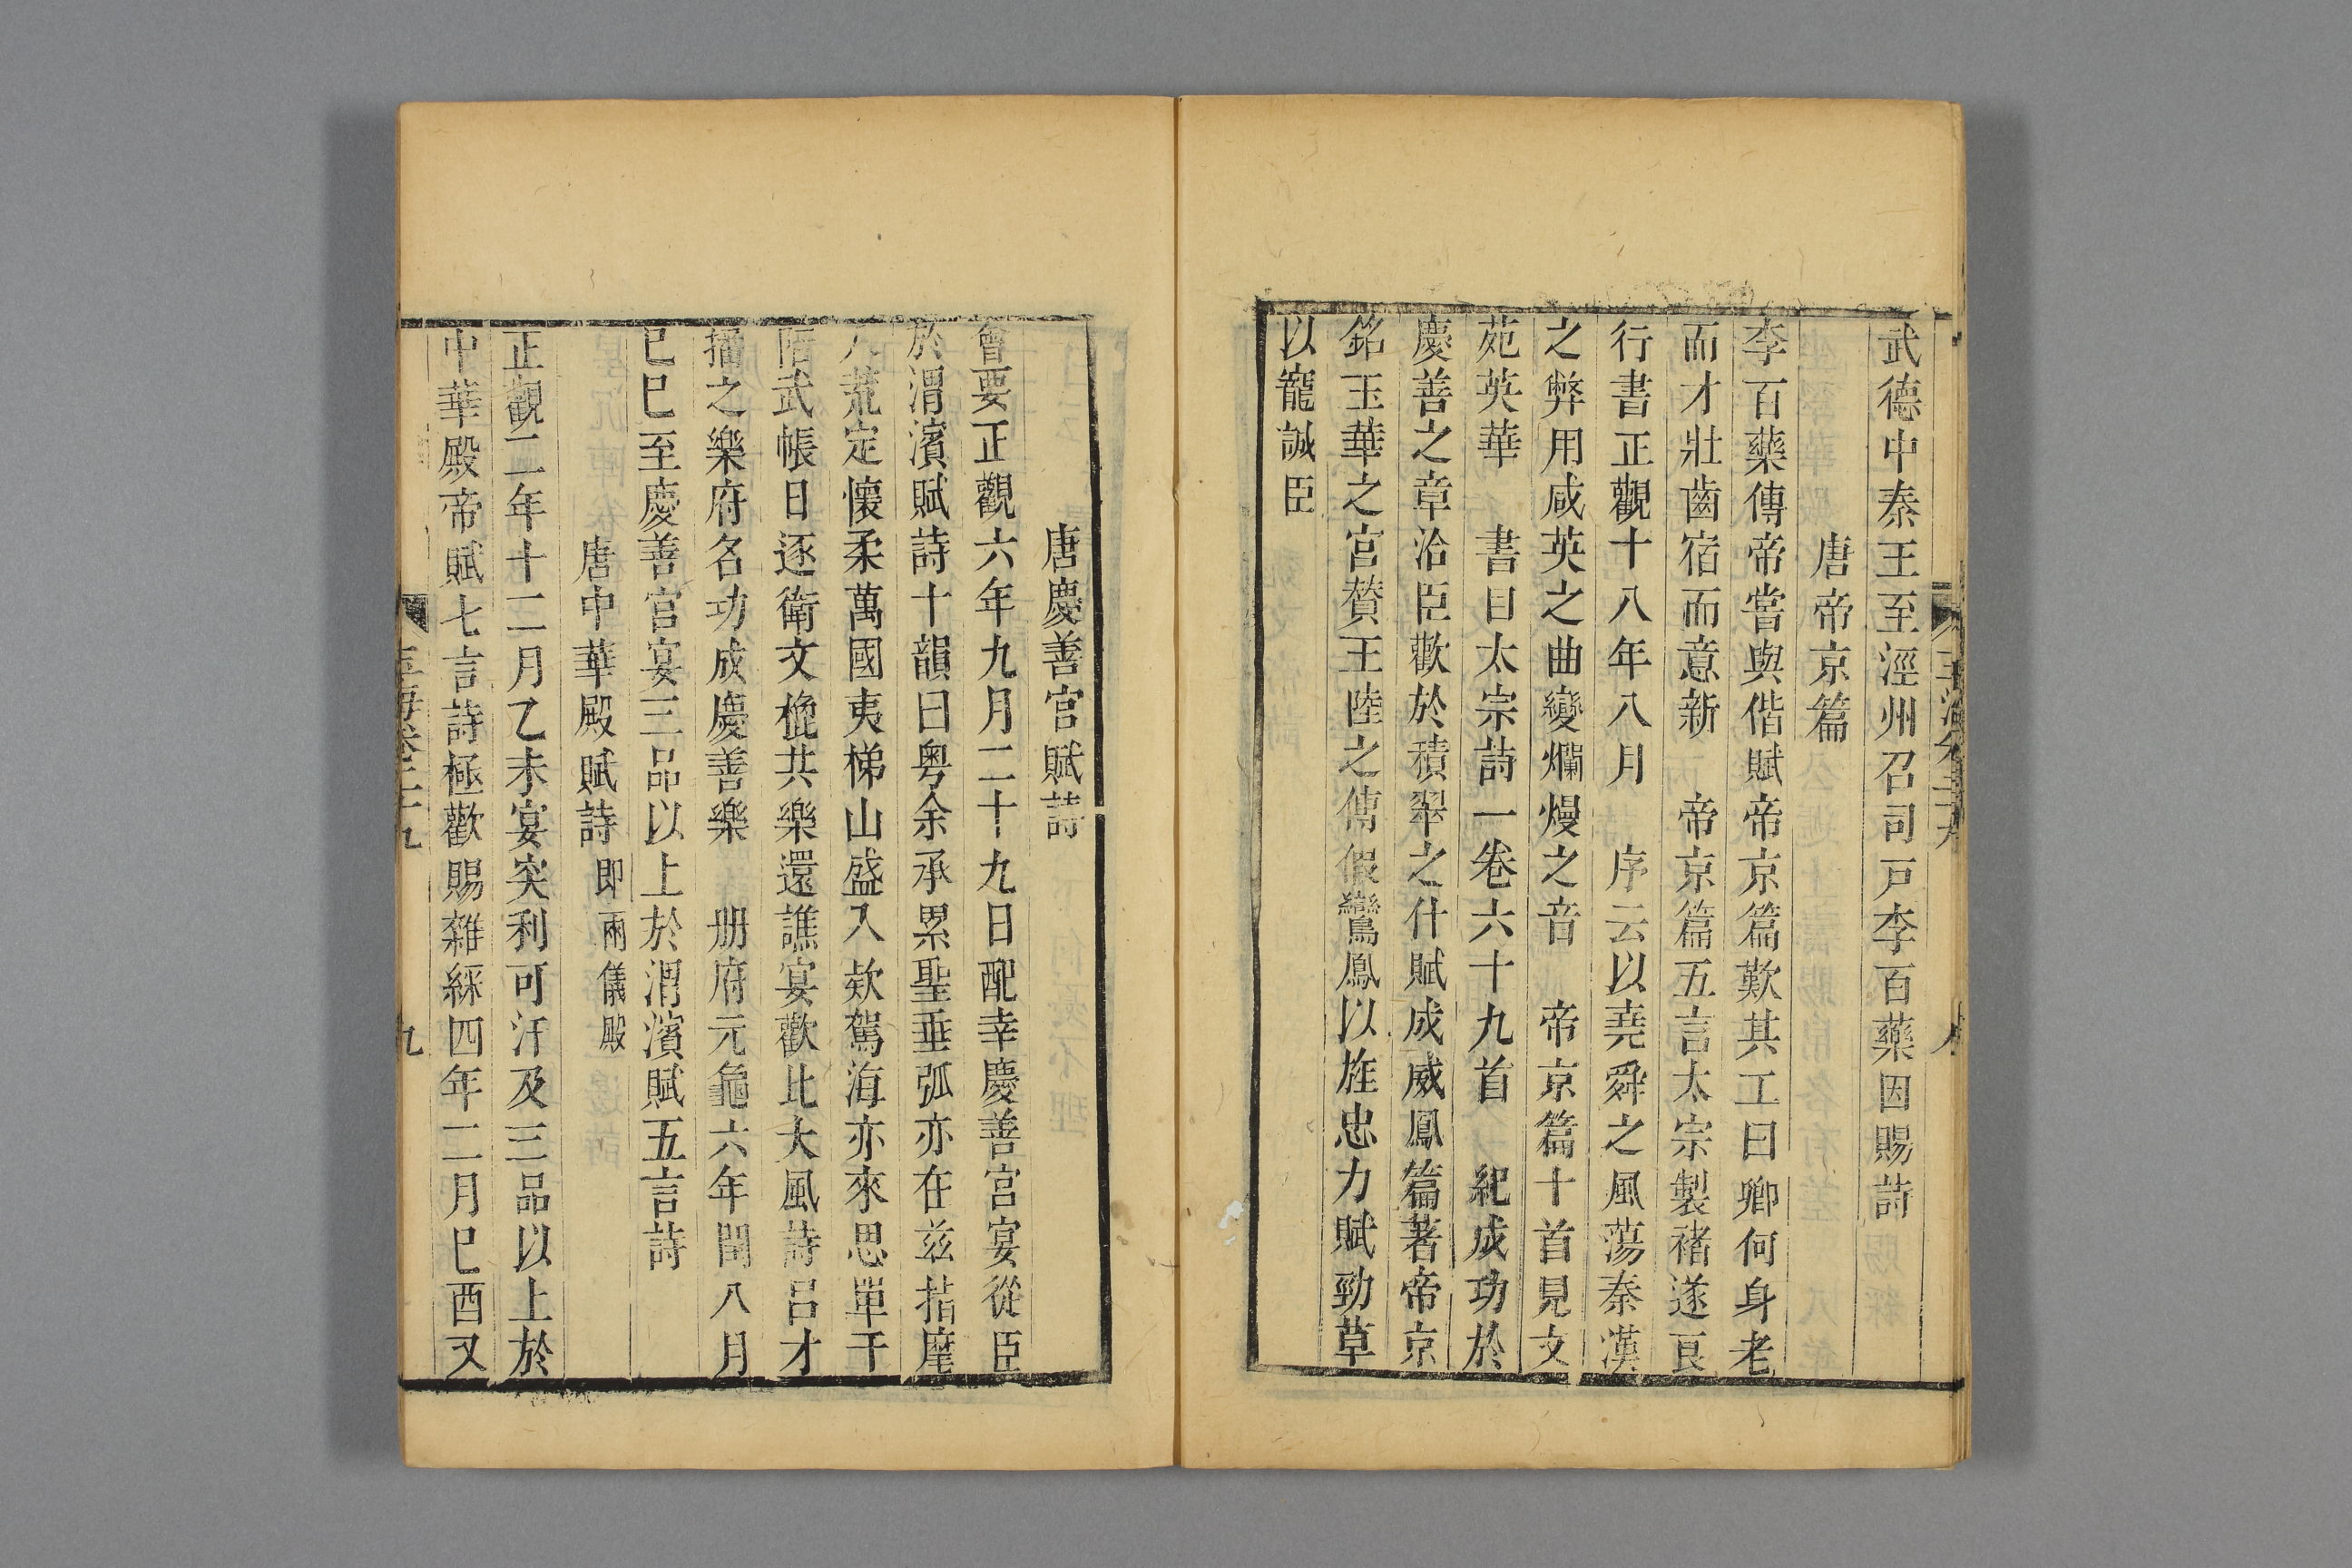 武德中秦王至涇州召司戸李百藥因賜詩
唐帝京篇
李百藥傳帝嘗與偕賦帝京篇歎其工曰卿何身老
而才壯齒宿而意新　帝京篇五言太宗製褚遂良
行書正觀十八年八月　序云以堯舜之風蕩秦漢
之弊用咸英之曲變爛熳之音　帝京篇十首見文
苑英華　書目太宗詩一卷六十九首　紀成功於
慶善之章洽臣歡於積翠之什賦成威鳳篇著帝京
銘玉華之宮贊王陸之傳假鸞鳳以旌忠力賦勁草
以寵誠臣
唐慶善宮賦詩
會要正觀六年九月二十九日配幸慶善宮宴從臣
於渭濱賦詩十韻曰粵余承累聖垂弧亦在兹指麾
八荒定懷柔萬國夷梯山盛入欵駕海亦來思單于
陪武帳日逐衛文㮰共樂還譙宴歡比大風詩呂才
播之樂府名功成慶善樂　册府元龜六年閏八月
巳巳至慶善宮宴三品以上於渭濱賦五言詩
唐中華殿賦詩即兩儀殿
正觀二年十二月乙未宴突利可汗及三品以上於
中華殿帝賦七言詩極歡賜雜綵四年二月巳酉又
玉海卷二十九
九